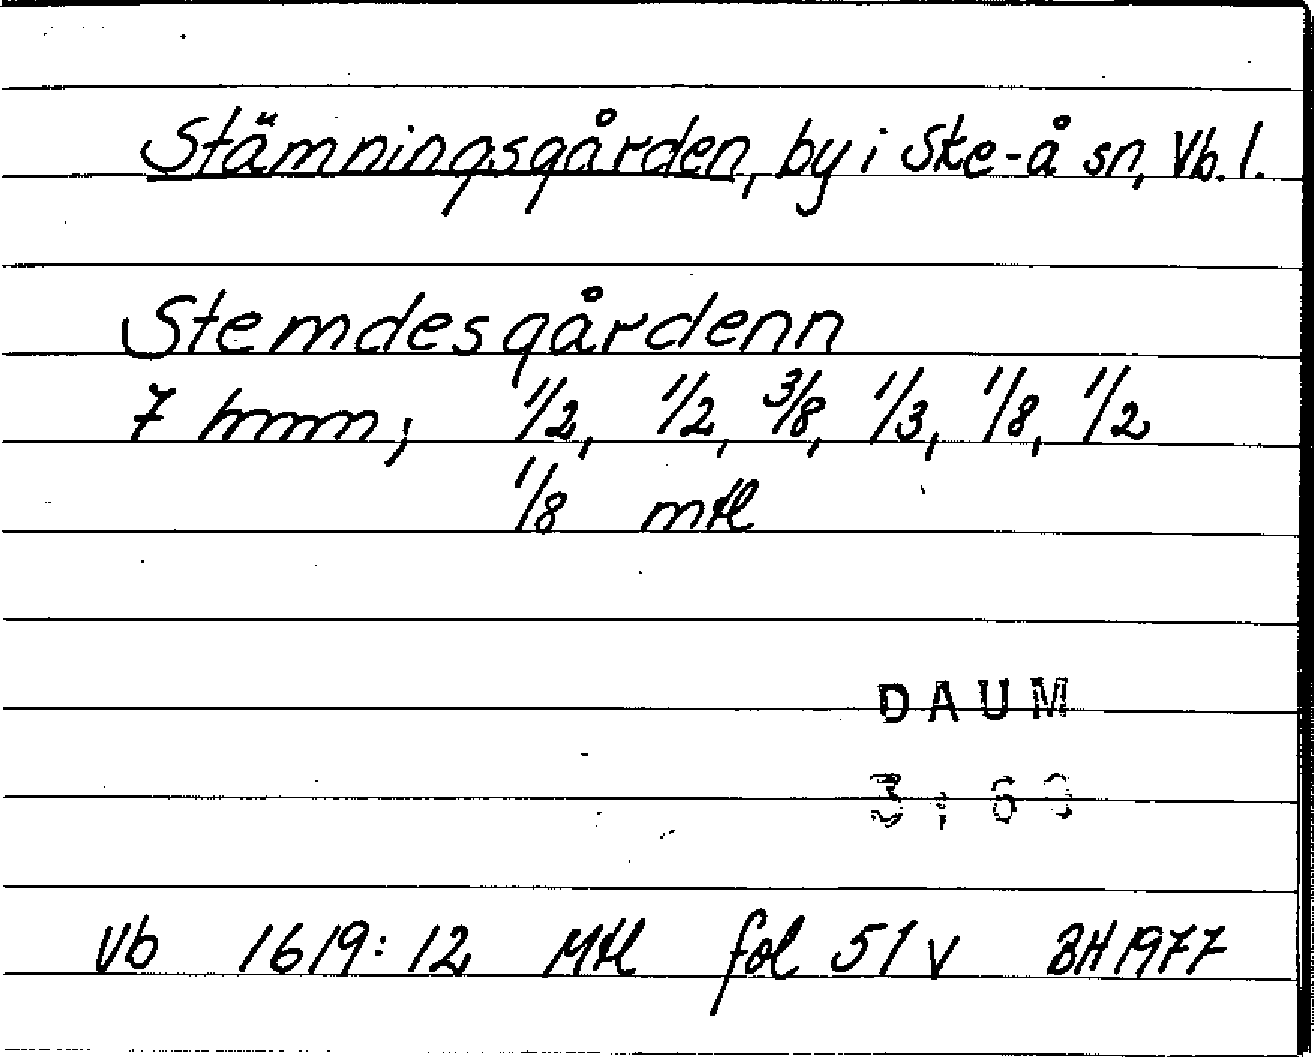 Stämningsgården, by i Ske-å sn, Vb. l.
Stemdesgårdenn
7 hmn; 1/2, 1/2, 3/8, 1/3, 1/8, 1/2
1/8 mtl
DAUM
Vb 1619:12 Mtl fol 51 v BH 1977